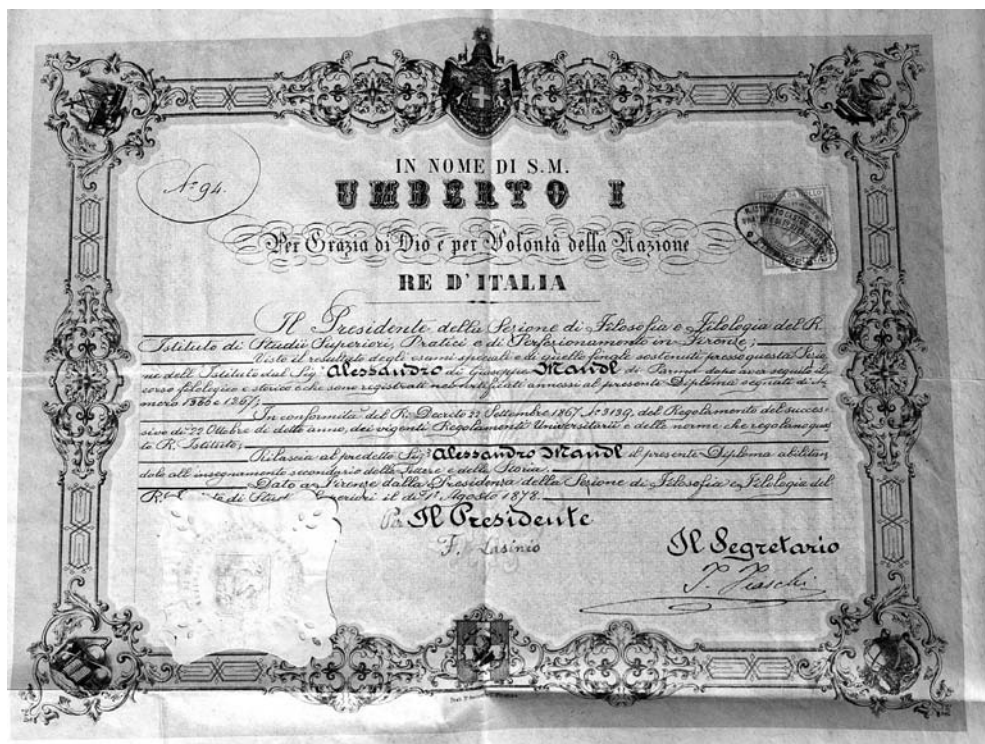 Nº 94.
IN NOME DI S.M.
UMBERTO I
Per Grazia di Dio e per Volontà della Nazione
RE D'ITALIA
Il Presidente della Sezione di Filosofia e Filologia del R.
Istituto di Studii Superiori, Pratici e di Perfezionamento in Firenze;
Visto il resultato degli esami speciali e di quello finale sostenuti presso questa Sezio
ne dell'Istituto dal Sigr Alessandro di Giuseppe Mandl di Parma dopo aver seguito il
corso filologico e storico e che sono registrati nei Certificati annessi al presente Diploma segnati di nu
mero 1266 e 1267;
In conformità del R. Decreto 22 Settembre 1867 Nº 3139, del Regolamento del succes-
sivo dì 22 Ottobre di detto anno, dei vigenti Regolamenti Universitarii e delle norme che regolano ques
to R. Istituto;
Rilascia al predetto Sigr Alessandro Mandl il presente Diploma abilitan
dolo all'insegnamento secondario delle Lettere e della Storia.
Dato a Firenze dalla Presidenza della Sezione di Filosofia e Filologia del
R. di Studi Superiori il dì 1º Agosto 1878.
Il Presidente
F. Lasinio
Il Segretario